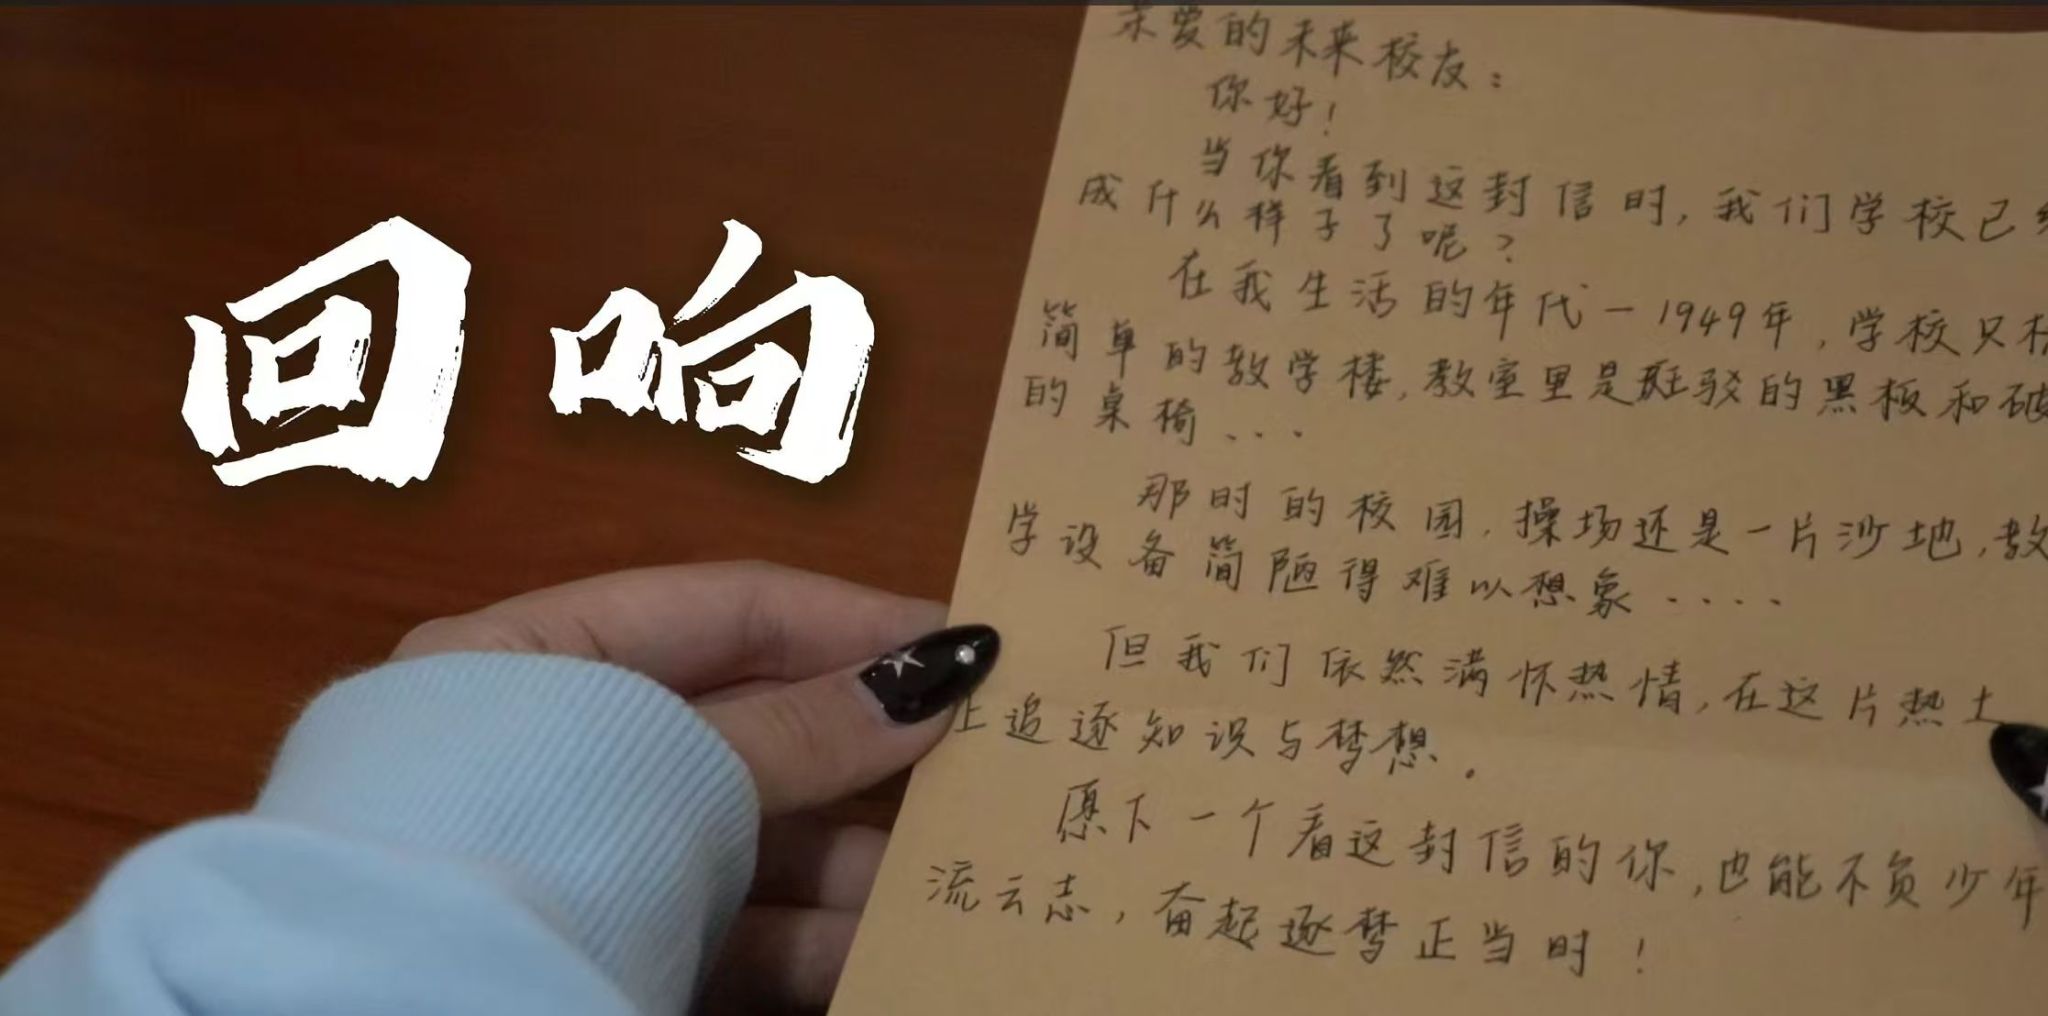 回响
亲爱的未来校友：
你好！
当你看到这封信时，我们学校已
成什么样子了呢？
在我生活的年代－1949年，学校只
简单的教学楼，教室里是斑驳的黑板和破
的桌椅...
那时的校园，操场还是一片沙地，教
学设备简陋得难以想象....
但我们依然满怀热情，在这片热土
上追逐知识与梦想。
愿下一个看这封信的你，也能不负少年
流云志，奋起逐梦正当时！